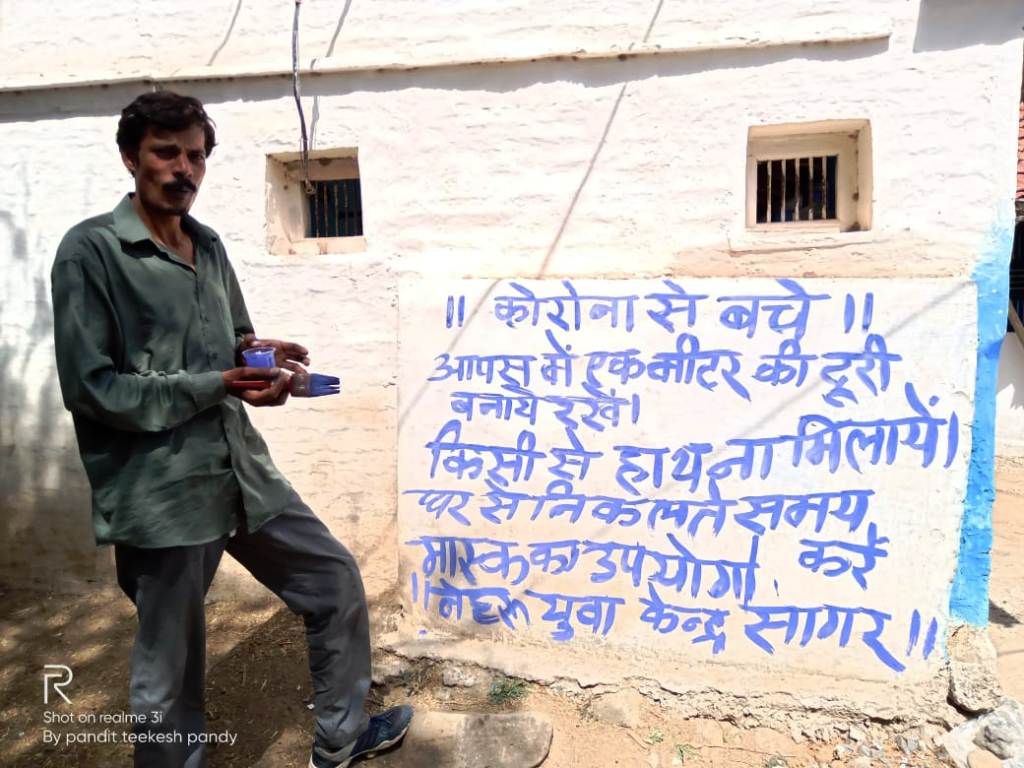 ॥ कोरोना से बचे ॥
आपस में एक मीटर की दूरी
बनाये रखें।
किसी से हाथ ना मिलायें।
घर से निकलते समय
मास्क का उपयोग करें
॥ नेहरू युवा केन्द्र सागर ॥
R
Shot on realme 3i
By pandit teekesh pandy